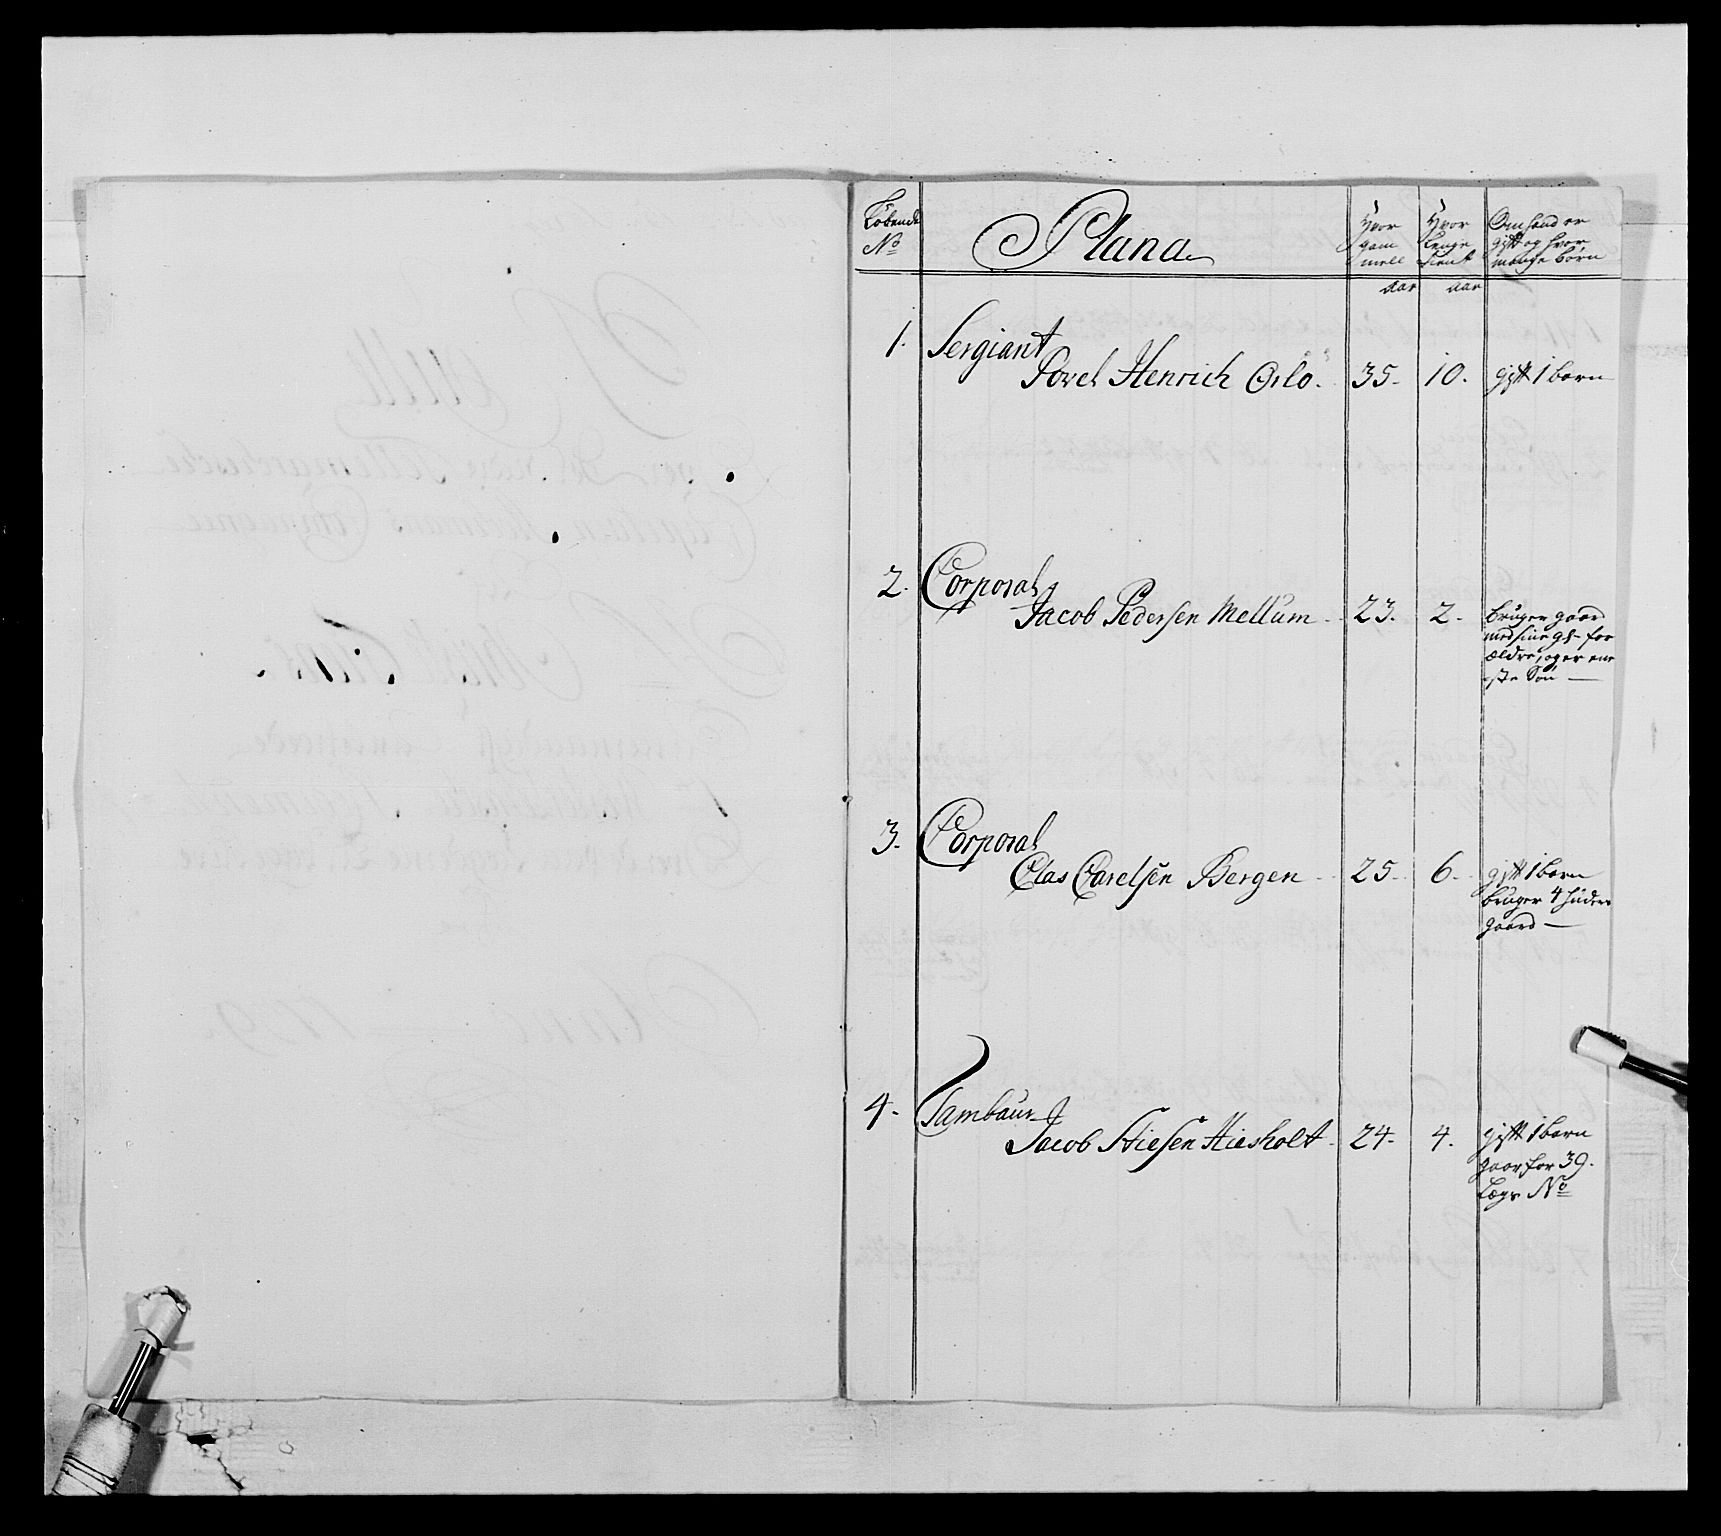 Løbende No Plana Hvor gam mell Hvor lenge tient Om hand er gift og hvor mange børn
aar aar
1. Sergiant
Povel Henrich Oslo. 35. 10. gift 1 barn
2. Corporal
Jacob Pedersen Mellum 23. 2. bruger gaard
med sine g. for
ældre, og er ene
ste Søn
3. Corporal
Clas Carelsen Bergen 25. 6. gift 1 barn
bruger 4 huders
gaard
4. Tambaur
Jacob Stiesen Hiesholt 24. 4. gift 1 barn
gaar for 39.
Lægs No